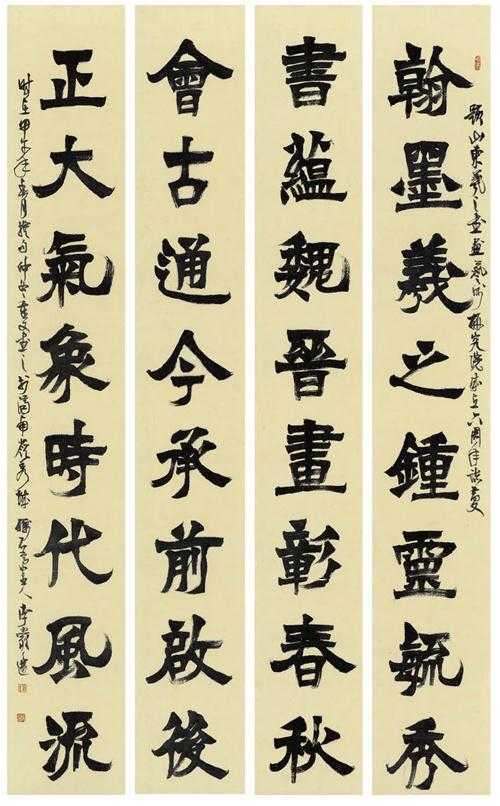 題山東羲之書畫藝術研究院成立六周年誌慶
翰墨羲之鍾靈毓秀
書蘊魏晉畫彰春秋
會古通今承前啟後
正大氣象時代風流
時在甲午年春月